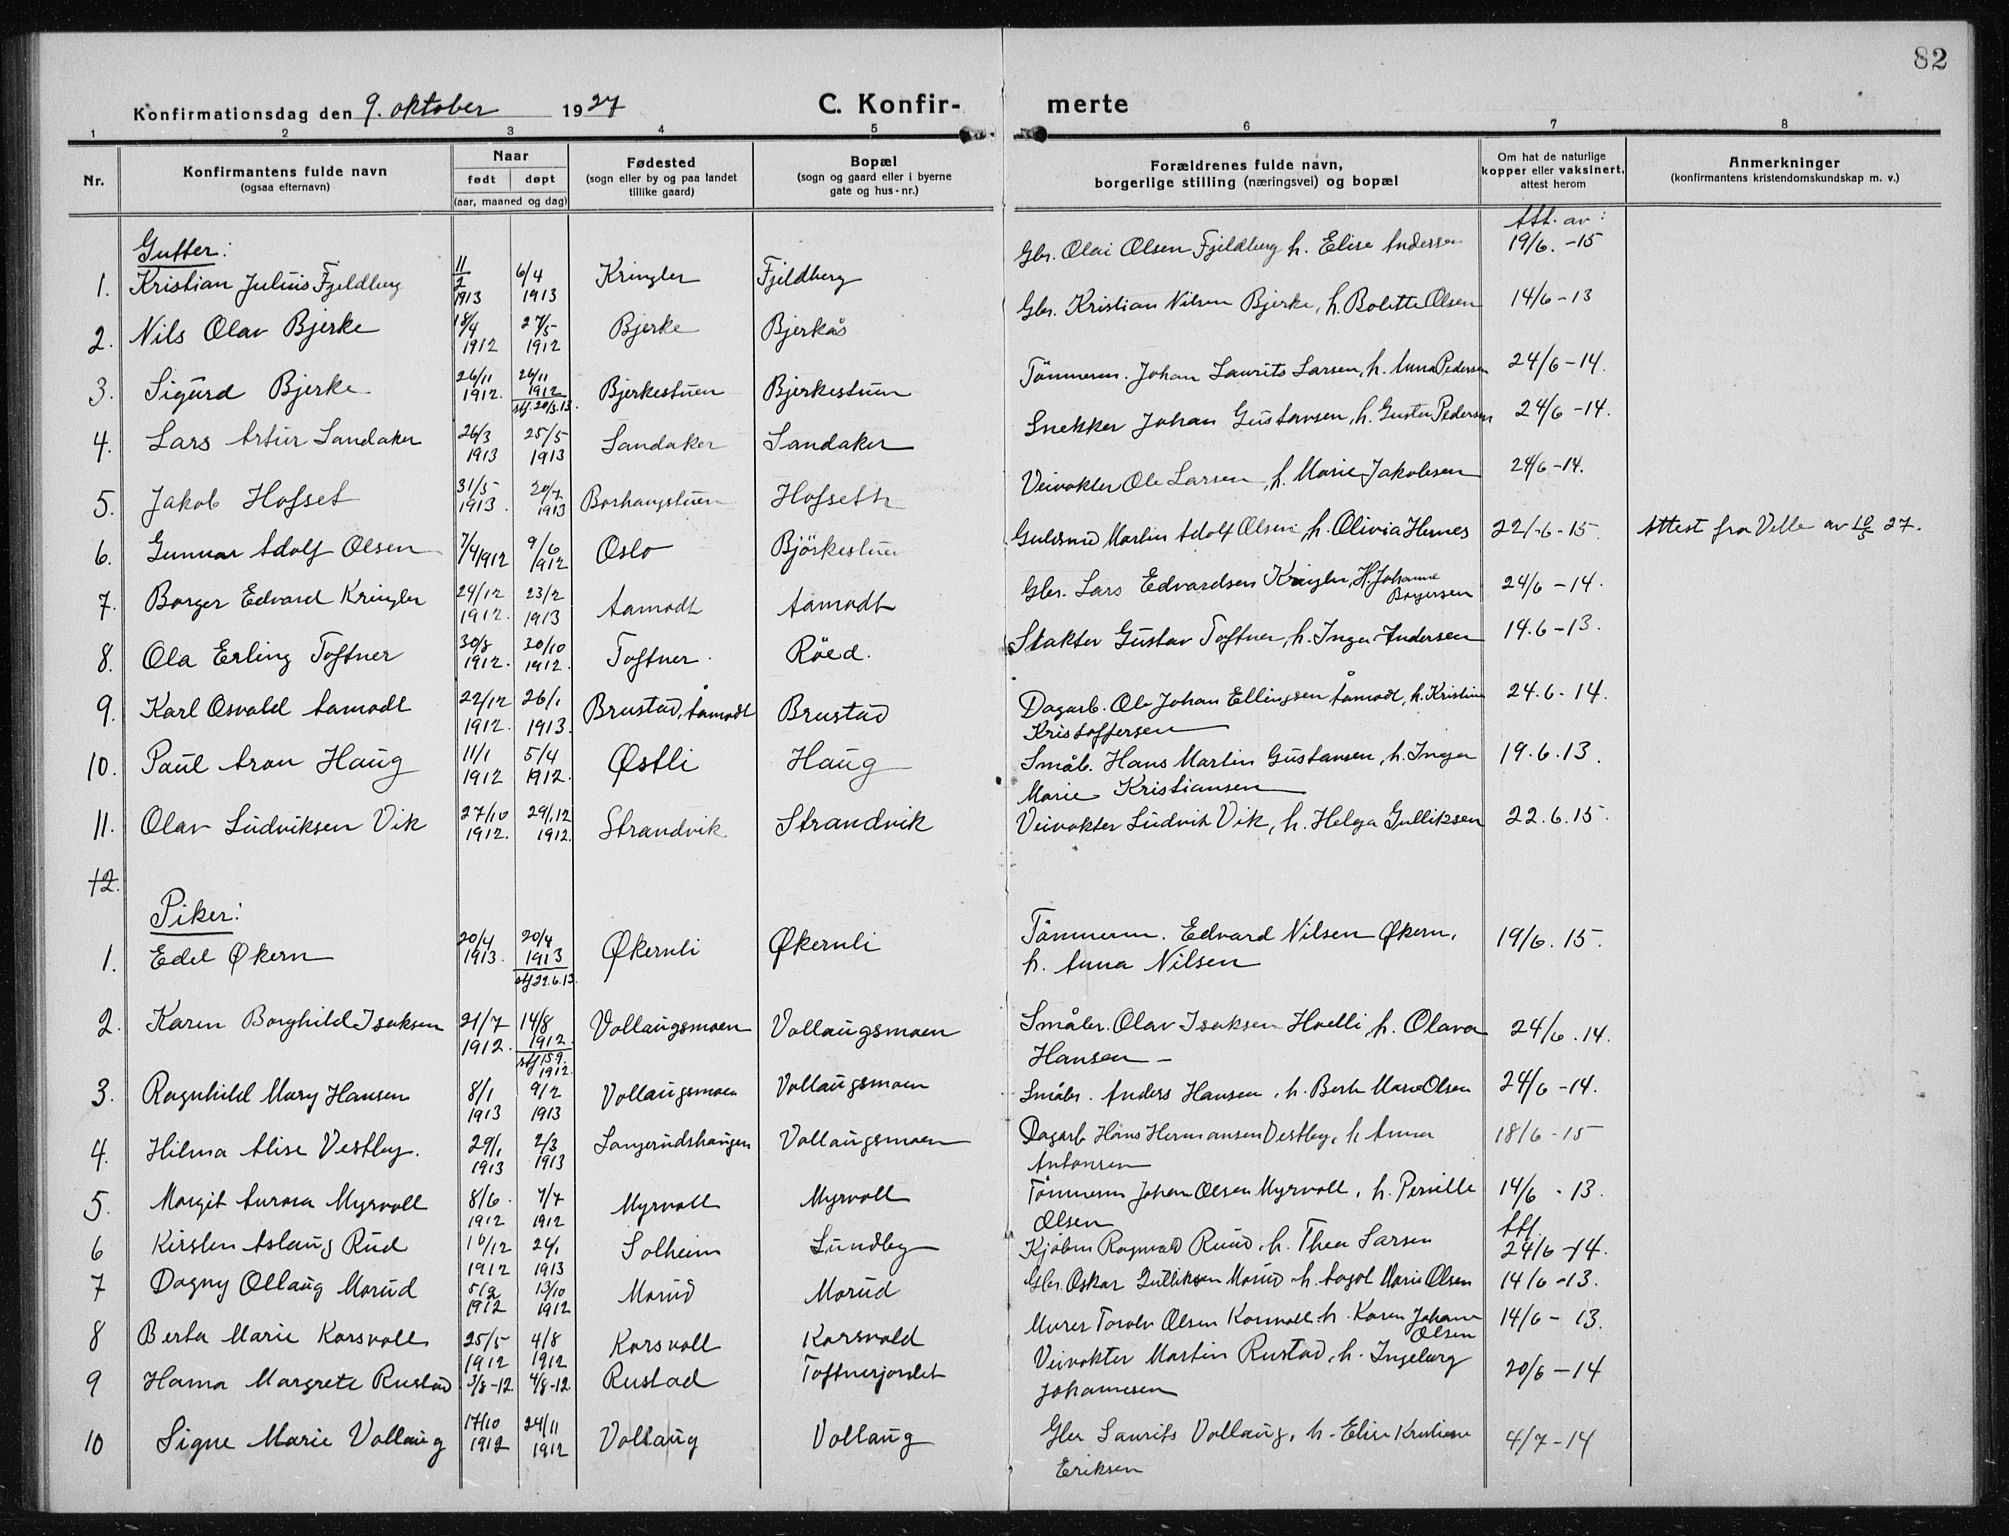 82
Konfirmationsdag den 9. oktober 1927 C. Konfirmerte
1 2 3 4 5 6 7 8
Nr.
Konfirmantens fulde navn
(ogsaa efternavn)
Naar
født døpt
(aar, maaned og dag)
Fødested
(sogn eller by og paa landet
tillike gaard)
Bopæl
(sogn og gaard eller i byerne
gate og hus-nr.)
Forældrenes fulde navn,
borgerlige stilling (næringsvei) og bopæl
Om hat de naturlige
kopper eller vaksinert,
attest herom
Anmerkninger
(konfirmantens kristendomskundskap m. v.)
Gutter:
Att. av:
1. Kristian Julius Fjeldberg 11/2 1913 6/4 1913 Kringler Fjeldberg Gbr. Olai Olsen Fjeldberg h. Elise Andersen 19/6. -15
2. Nils Olav Bjerke 18/4 1912 27/5 1912 Bjerke Bjerkås Gbr. Kristian Nilsen Bjerke, h. Bolette Olsen 14/6 -13
3. Sigurd Bjerke 26/11 1912. 26/11 1912 stf. 20/3.13. Bjerkestuen Bjerkestuen Tömmerm. Johan Laurits Larsen, h. Anna Pedersen 24/6 -14.
4. Lars Artur Sandaker 26/3 1913 25/5 1913 Sandaker Sandaker Snekker Johan Gustavsen, h. Gusta Pedersen 24/6 -14.
5. Jakob Hofset 31/5 1913. 20/7 1913 Borhaugstuen Hofseth Veivokter Ole Larsen, h. Marie Jakobsen 24/6 -14.
6. Gunnar Adolf Olsen 7/4 1912 9/6 1912 Oslo Björkestuen Guldsmd Martin Adolf Olsen h. Olivia Hernes 22/-6-15. Attest fra Velle av 10/5 27.
7. Borger Edvard Kringler 24/12 1912. 23/2 1913 Aamodt Aamodt Gbr. Lars Edvardsen Kringler, H. Johanne
Borgersen 24/6 -14.
8. Ola Erling Toftner 30/8 1912. 20/10 1912. Toftner. Röed. Stakter Gustav Toftner, h. Inga Andersen 14.6-13.
9. Karl Osvald Aamodt 22/12 1912. 26/1 1913. Brustad, Åamodt Brustad Dagarb. Ole Johan Ellingsen Åamodt, h. Kristine
Kristoffersen 24.6-14.
10. Paul Aron Haug 11/1 1912 5/4 1912. Østli Haug Småb. Hans Martin Gustavsen, h. Inga
Marie Kristiansen 19.6.13.
11. Olav Ludviksen Vik 27/10 1912. 29/.12 1912. Strandvik Strandvik Veivokter Ludvik Vik, h. Helga Gulliksen 22.6.15.
12.
Piker:
1. Edel Økern 20/4 1913. 20/4 1913 stf 22.6.13. Økernli Økernli Tömmerm. Edvard Nilsen Økern,
h. Anna Nilsen 19/6. 15.
2. Karen Borghild Isaksen 21/7 1912. 14/8 1912. stf 15 9. 1912. Vollaugsmoen Vollaugsmoen Småbr. Olav Isaksen Hoelli, h. Olava
Hansen - 24/6 .14.
3. Ragnhild Mary Hansen 8/1 1913 9/2 1913 Vollaugsmoen Vollaugsmoen Småbr. Anders Hansen, h. Berte Marie Olsen 24/6 -14.
4. Hilma Alise Vestby. 29/1 1913 2/3 1913 Langerudshaugen Vollaugsmoen Dagarb Hans Hermansen Vestby, h Anna
Antonsen 18/6 -15
5. Margit Aurora Myrvoll 8/6. 1912 7/7 1912 Myrvoll Myrvoll Tömmerm Johan Olsen Myrvoll, h. Pernille
Olsen 14/6 . 13.
Att.
6 Kirsten Aslaug Rud 16/12 1912 26/1 1913 Solheim Lundby Kjöbm Ragnvald Ruud, h. Thea Larsen 24/6 -14.
7 Dagny Ollaug Morud 5/9 1912 13/10 1912 Morud Morud Gbr. Oskar Gulliksen Morud h. Aagot Marie Olsen 14/6 -13.
8 Berta Marie Korsvoll 25/5 1912 4/8 1912 Korsvoll Korsvold Murer Torolv Olsen Korsvoll h. Karen Johanne
Olsen 14/6 - 13.
9 Hanna Margrete Rustad 3/8-12 4/8-12 Rustad Toftnerjordet Veivokter Martin Rustad, h. Ingeborg
Johannesen 20/6 -14
10 Signe Marie Vollaug 17/10 1912 24/11 1912 Vollaug Vollaug Gbr Laurits Vollaug, h. Elise Kristiane
Eriksen 4/7 -14